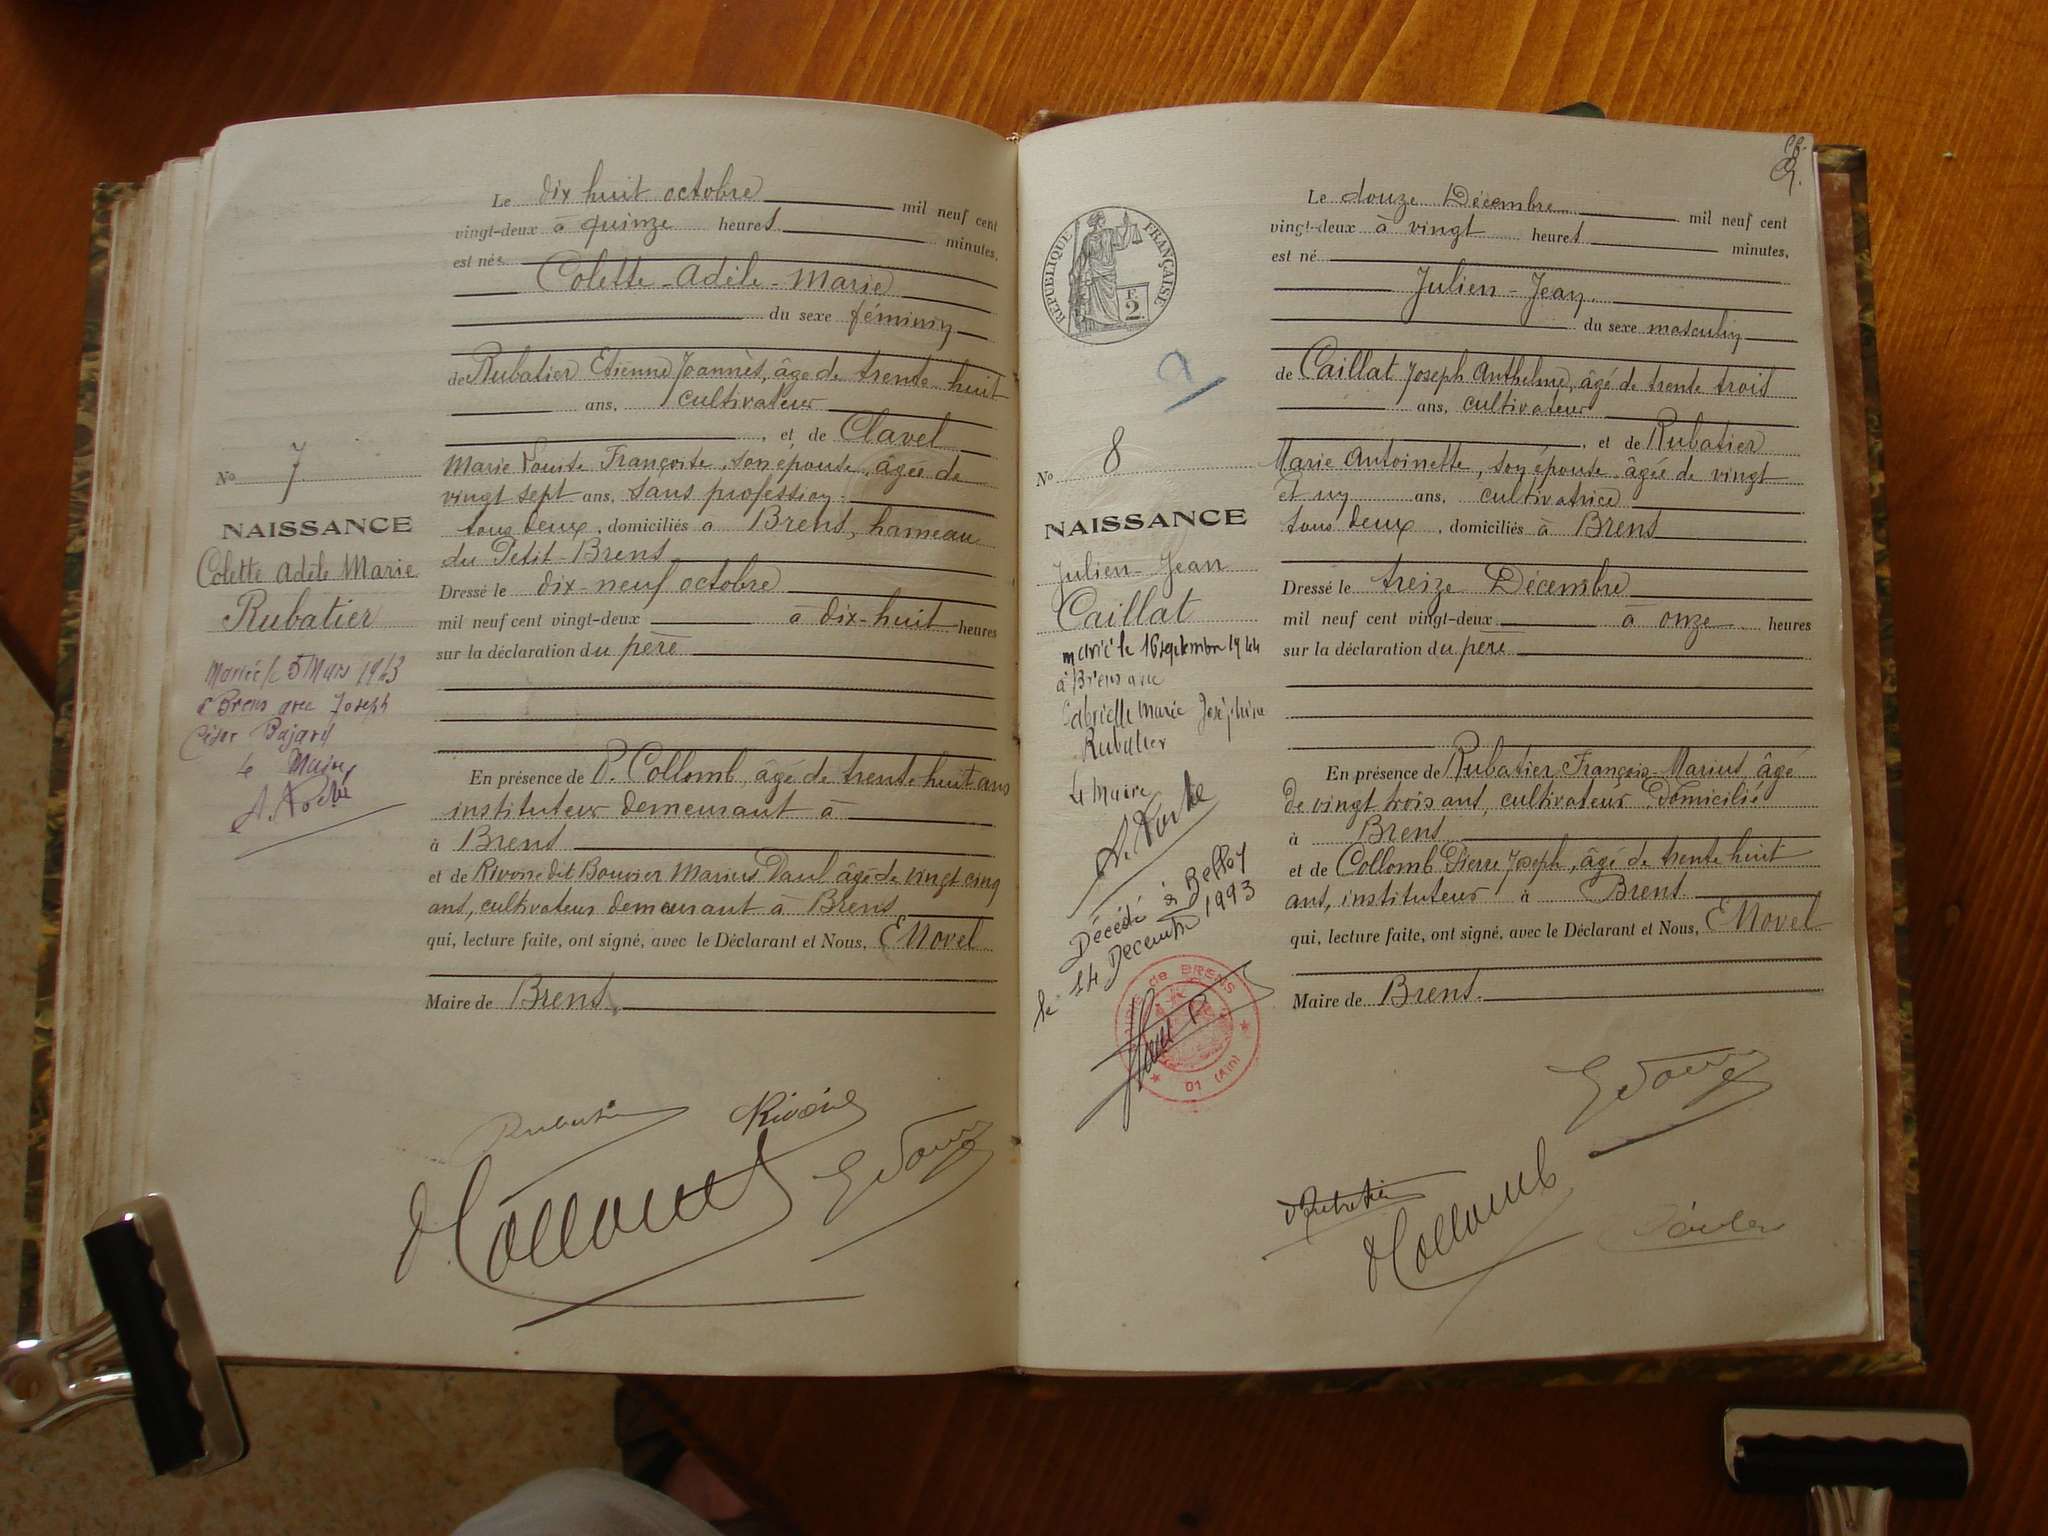 Le dix huit octobre mil neuf cent
vingt-deux à quinze heures minutes,
est née
Colette-Adèle-Marie
du sexe féminin
de Rubatier Etienne Joannès, âgé de trente huit
ans, cultivateur
, et de Clavel
Marie Louise Françoise, son épouse, âgée de
vingt sept ans, sans profession
tous deux, domiciliés à Brens, hameau
du Petit-Brens
Dressé le dix-neuf octobre
mil neuf cent vingt-deux à dix-huit heures
sur la déclaration du père
En présence de P. Collomb, âgé de trente huit ans
instituteur demeurant à
à Brens
et de Rivoire dit Bouvier Marius Paul âgé de vingt cinq
ans, cultivateur demeurant à Brens
qui, lecture faite, ont signé, avec le Déclarant et Nous, E Novel
Maire de Brens.
No 7
NAISSANCE
Colette Adèle Marie
Rubatier
Mariée le 5 Mars 1943
à Brens avec Joseph
César Pajard
Le Maire
Rubatier Rivoire
Collomb
Le douze Décembre mil neuf cent
vingt-deux à vingt heures minutes,
est né
Julien-Jean.
du sexe masculin
de Caillat Joseph Anthelme, âgé de trente trois
ans, cultivateur
, et de Rubatier
Marie Antoinette, son épouse âgée de vingt
et un ans, cultivatrice
tous deux, domiciliés à Brens
Dressé le treize Décembre
mil neuf cent vingt-deux à onze heures
sur la déclaration du père
En présence de Rubatier François-Marius, âgé
de vingt trois ans, cultivateur domicilié
à Brens
et de Collomb Pierre Joseph, âgé de trente huit
ans, instituteur à Brens
qui, lecture faite, ont signé, avec le Déclarant et Nous, E Novel
Maire de Brens.
RÉPUBLIQUE FRANÇAISE
F.
2
No 8
NAISSANCE
Julien-Jean
Caillat
marié le 16 septembre 1944
à Brens avec
Gabrielle Marie Joséphine
Rubatier
Le Maire
Décédé à Belley
le 14 Décembre 1993
de BRENS
01 (Ain)
Collomb